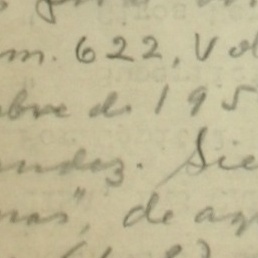 m. 622, Vol
bre de 195
andez. Sie
nas", de ag